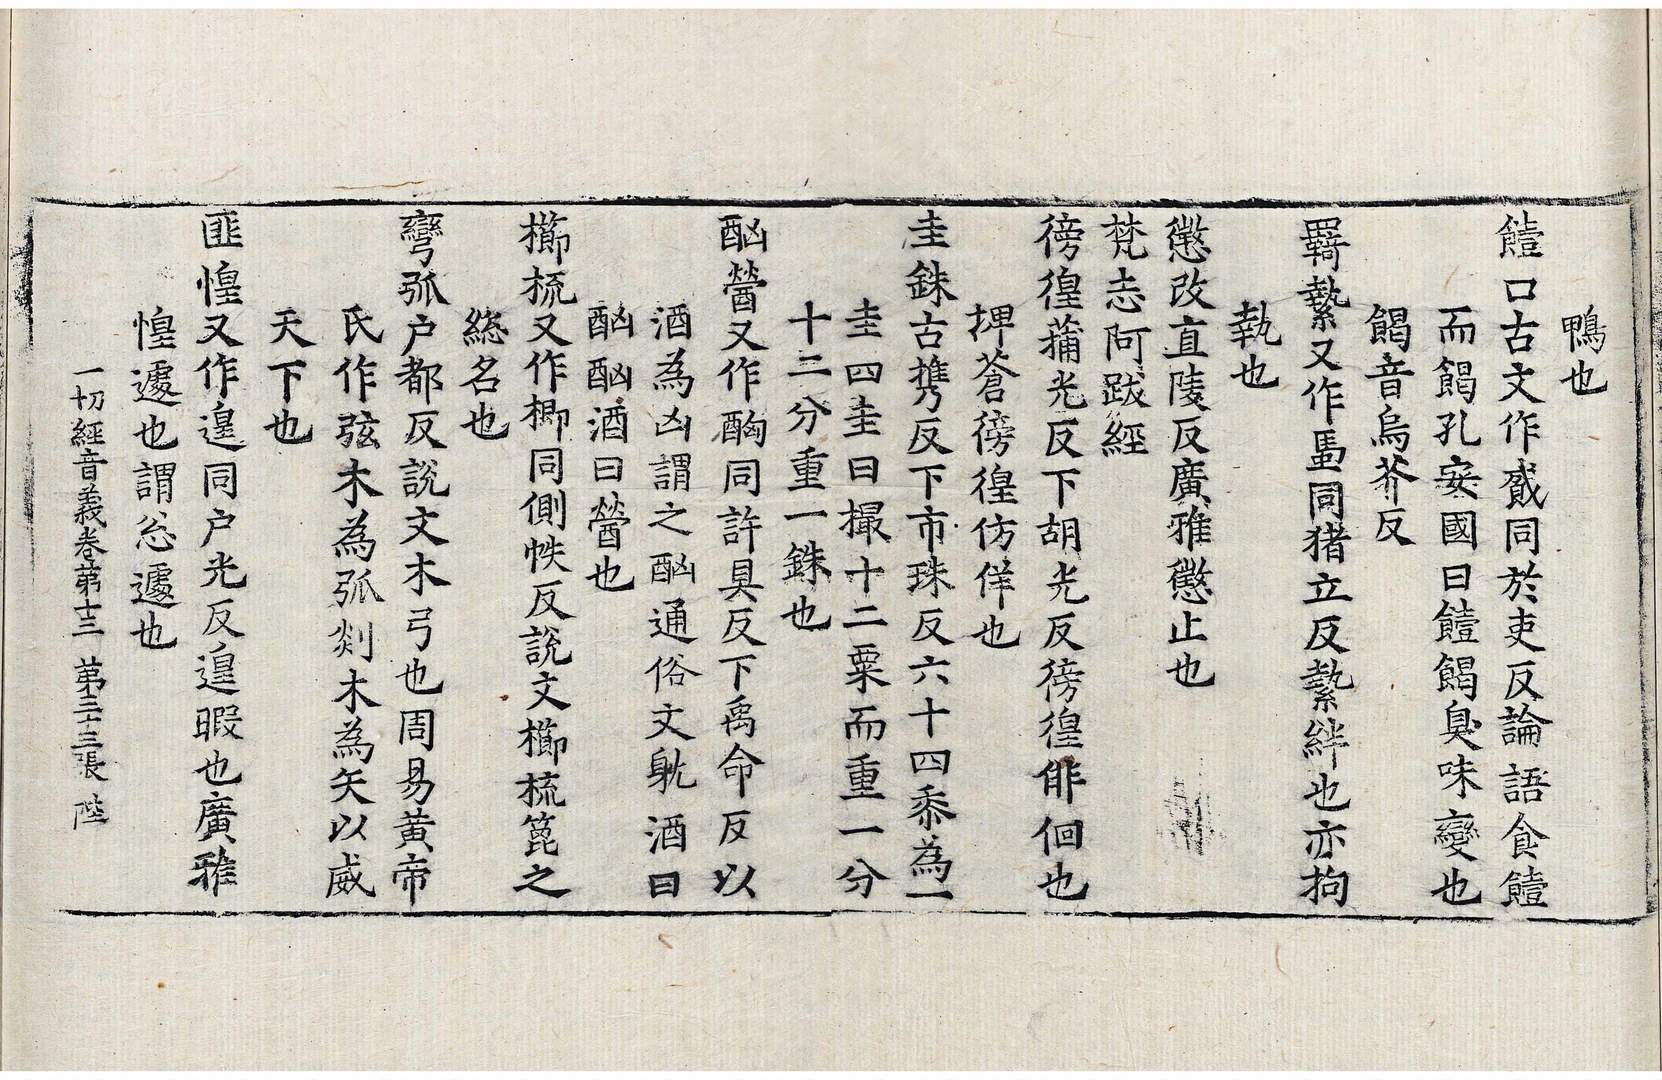 鴨也
饐口古文作𩜾同於吏反論語食饐
而餲孔安國曰饐餲臭味變也
餲音烏芥反
羇縶又作馽同猪立反縶絆也亦拘
執也
懲改直陵反廣雅懲止也
梵志阿跋經
徬徨蒲光反下胡光反徬徨俳佪也
捭蒼徬徨仿佯也
圭銖古攜反下市珠反六十四黍為一
圭四圭曰撮十二粟而重一分
十二分重一銖也
酗醟又作酶同許具反下禹命反以
酒為凶謂之酗通俗文躭酒曰
酗酗酒曰醟也
櫛梳又作楖同側帙反説文櫛梳箆之
緫名也
彎弧户都反説文木弓也周易黄帝
氏作弦木為弧剡木為矢以威
天下也
匪惶又作遑同户光反遑暇也廣雅
惶遽也謂忩遽也
一切經音義卷苐十三 苐三十三張 陛